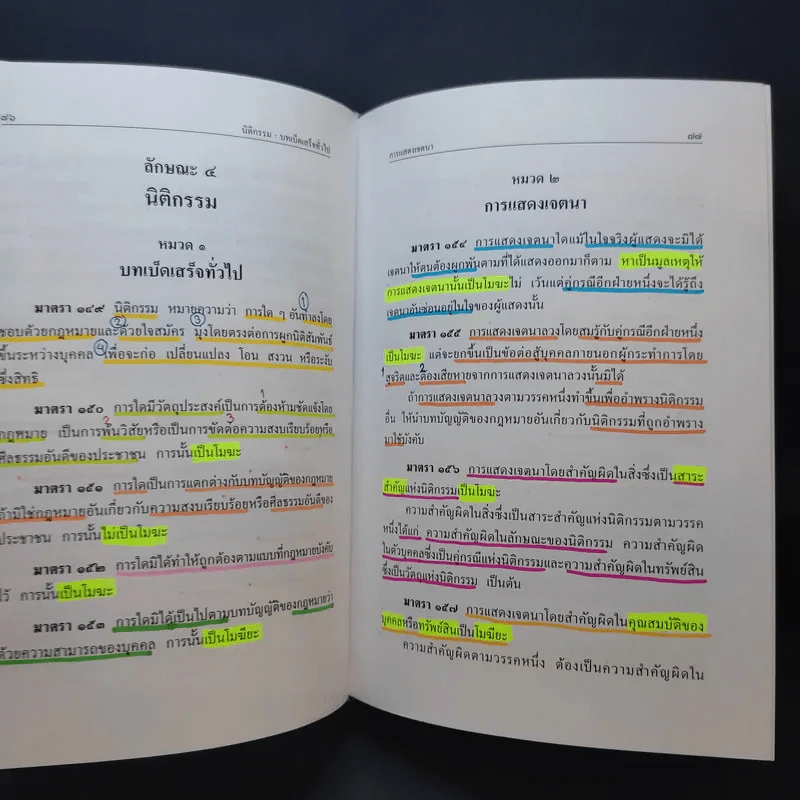 ๗๖
นิติกรรม : บทเบ็ดเสร็จทั่วไป
ลักษณะ ๔
นิติกรรม
หมวด ๑
บทเบ็ดเสร็จทั่วไป
มาตรา ๑๔๙ นิติกรรม หมายความว่า การใด ๆ อันทำลงโดย
ชอบด้วยกฎหมายและด้วยใจสมัคร มุ่งโดยตรงต่อการผูกนิติสัมพันธ์
ขึ้นระหว่างบุคคล เพื่อจะก่อ เปลี่ยนแปลง โอน สงวน หรือระงับ
ซึ่งสิทธิ
มาตรา ๑๕๐ การใดมีวัตถุประสงค์เป็นการต้องห้ามชัดแจ้งโดย
กฎหมาย เป็นการพ้นวิสัยหรือเป็นการขัดต่อความสงบเรียบร้อยหรือ
ศีลธรรมอันดีของประชาชน การนั้นเป็นโมฆะ
มาตรา ๑๕๑ การใดเป็นการแตกต่างกับบทบัญญัติของกฎหมาย
ถ้ามิใช่กฎหมายอันเกี่ยวกับความสงบเรียบร้อยหรือศีลธรรมอันดีของ
ประชาชน การนั้นไม่เป็นโมฆะ
มาตรา ๑๕๒ การใดมิได้ทำให้ถูกต้องตามแบบที่กฎหมายบังคับ
ไว้ การนั้นเป็นโมฆะ
มาตรา ๑๕๓ การใดมิได้เป็นไปตามบทบัญญัติของกฎหมายว่า
ด้วยความสามารถของบุคคล การนั้นเป็นโมฆียะ
การแสดงเจตนา
๗๗
หมวด ๒
การแสดงเจตนา
มาตรา ๑๕๔ การแสดงเจตนาใดแม้ในใจจริงผู้แสดงจะมิได้
เจตนาให้ตนต้องผูกพันตามที่ได้แสดงออกมาก็ตาม หาเป็นมูลเหตุให้
การแสดงเจตนานั้นเป็นโมฆะไม่ เว้นแต่คู่กรณีอีกฝ่ายหนึ่งจะได้รู้ถึง
เจตนาอันซ่อนอยู่ในใจของผู้แสดงนั้น
มาตรา ๑๕๕ การแสดงเจตนาลวงโดยสมรู้กับคู่กรณีอีกฝ่ายหนึ่ง
เป็นโมฆะ แต่จะยกขึ้นเป็นข้อต่อสู้บุคคลภายนอกผู้กระทำการโดย
สุจริตและต้องเสียหายจากการแสดงเจตนาลวงนั้นมิได้
ถ้าการแสดงเจตนาลวงตามวรรคหนึ่งทำขึ้นเพื่ออำพรางนิติกรรม
อื่น ให้นำบทบัญญัติของกฎหมายอันเกี่ยวกับนิติกรรมที่ถูกอำพราง
มาใช้บังคับ
มาตรา ๑๕๖ การแสดงเจตนาโดยสำคัญผิดในสิ่งซึ่งเป็นสาระ
สำคัญแห่งนิติกรรมเป็นโมฆะ
ความสำคัญผิดในสิ่งซึ่งเป็นสาระสำคัญแห่งนิติกรรมตามวรรค
หนึ่งได้แก่ ความสำคัญผิดในลักษณะของนิติกรรม ความสำคัญผิด
ในตัวบุคคลซึ่งเป็นคู่กรณีแห่งนิติกรรมและความสำคัญผิดในทรัพย์สิน
ซึ่งเป็นวัตถุแห่งนิติกรรม เป็นต้น
มาตรา ๑๕๗ การแสดงเจตนาโดยสำคัญผิดในคุณสมบัติของ
บุคคลหรือทรัพย์สินเป็นโมฆียะ
ความสำคัญผิดตามวรรคหนึ่ง ต้องเป็นความสำคัญผิดใน